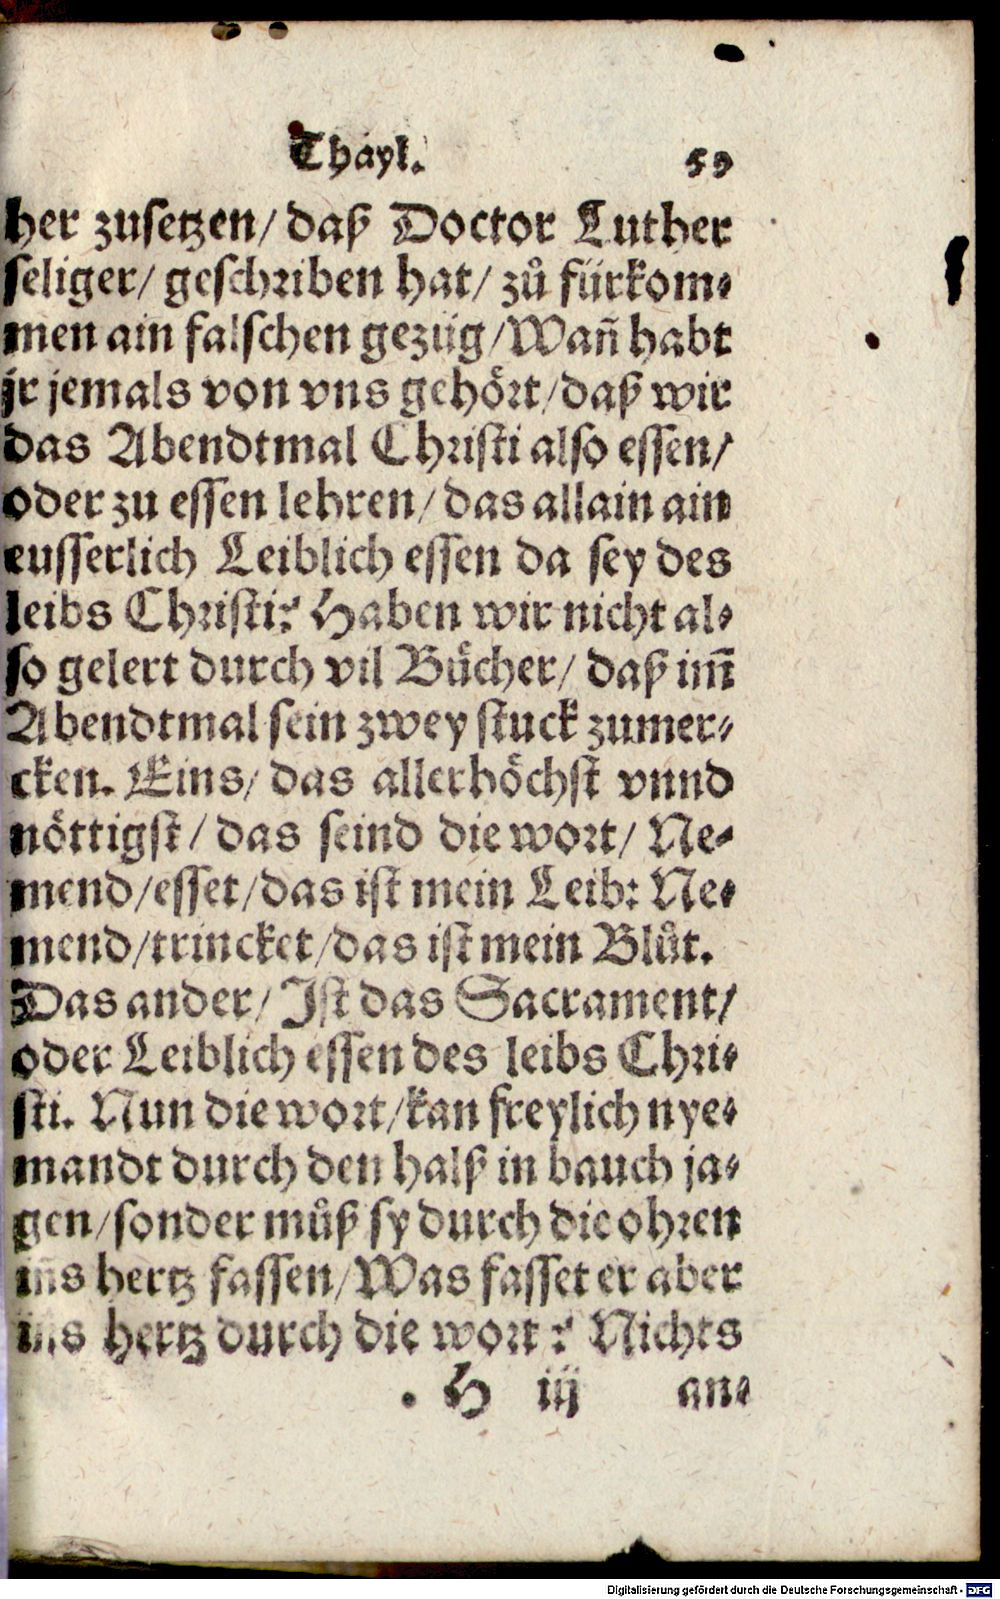 Thayl. 59
her zusetzen/ daß Doctor Luther
seliger/ geschriben hat/ zů fürkom⸗
men ain falschen gezüg/Wañ habt
jr jemals von vns gehört/daß wir
das Abendtmal Christi also essen/
oder zu essen lehren/ das allain ain
eusserlich Leiblich essen da sey des
leibs Christi? Haben wir nicht al⸗
so gelert durch vil Bücher/ daß im̃
Abendtmal sein zwey stuck zumer⸗
cken. Eins/ das allerhöchst vnnd
nöttigst/ das seind die wort/ Ne⸗
mend/esset/das ist mein Leib: Ne⸗
mend/trincket/das ist mein Blůt.
Das ander/ Ist das Sacrament/
oder Leiblich essen des leibs Chri⸗
sti. Nun die wort/kan freylich nye⸗
mandt durch den halß in bauch ja⸗
gen/sonder můß sy durch die ohren
iñs hertz fassen/Was fasset er aber
ins hertz durch die wort? Nichts
H iij an⸗
Digitalisierung gefördert durch die Deutsche Forschungsgemeinschaft - DFG